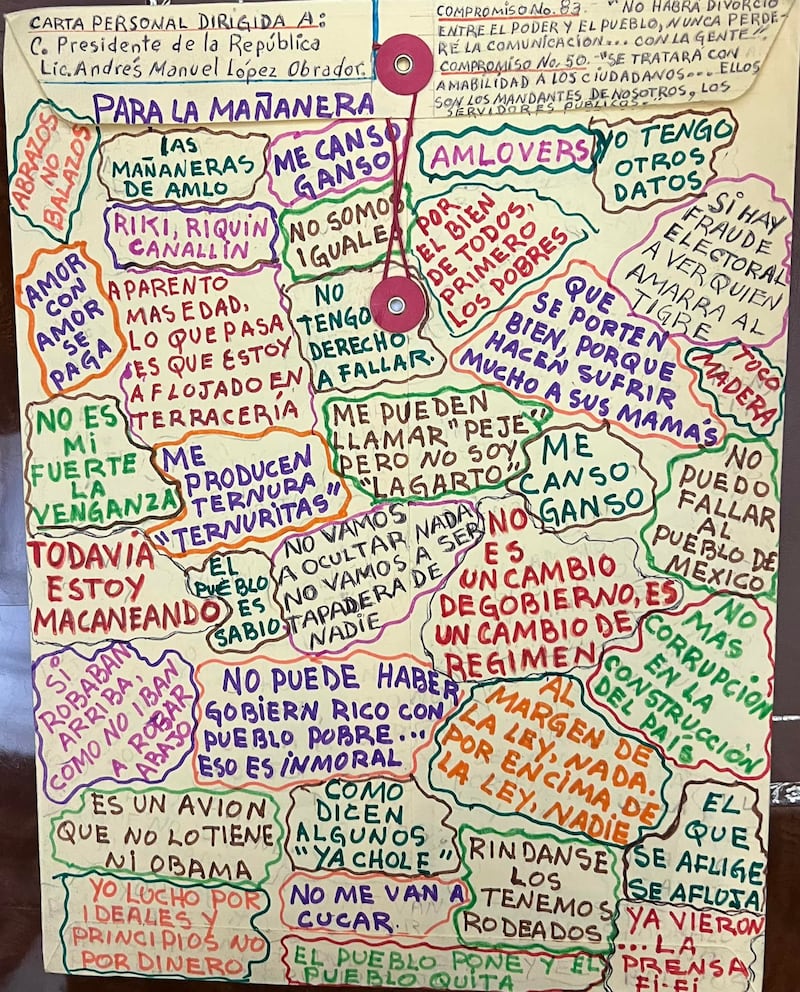 CARTA PERSONAL DIRIGIDA A:
C. Presidente de la República
Lic. Andrés Manuel López Obrador.
COMPROMISO No. 83.- "NO HABRÁ DIVORCIO
ENTRE EL PODER Y EL PUEBLO, NUNCA PERDE-
RÉ LA COMUNICACIÓN... CON LA GENTE".
COMPROMISO No. 50.- "SE TRATARÁ CON
AMABILIDAD A LOS CIUDADANOS... ELLOS
SON LOS MANDANTES DE NOSOTROS, LOS
SERVIDORES PÚBLICOS.
PARA LA MAÑANERA
ABRAZOS
NO
BALAZOS
LAS
MAÑANERAS
DE AMLO
ME CANSO
GANSO
AMLOVERS
YO TENGO
OTROS
DATOS
RIKI, RIQUIN
CANALLIN
NO SOMOS
IGUALES
POR
EL BIEN
DE TODOS,
PRIMERO
LOS POBRES
SI HAY
FRAUDE
ELECTORAL
A VER QUIEN
AMARRA AL
TIGRE
AMOR
CON
AMOR
SE
PAGA
APARENTO
MAS EDAD,
LO QUE PASA
ES QUE ESTOY
AFLOJADO EN
TERRACERÍA
NO
TENGO
DERECHO
A FALLAR.
QUE
SE PORTEN
BIEN, PORQUE
HACEN SUFRIR
MUCHO A SUS MAMÁS
TOCO
MADERA
NO ES
MI
FUERTE
LA
VENGANZA
ME
PRODUCEN
TERNURA
"TERNURITAS"
ME PUEDEN
LLAMAR "PEJE"
PERO NO SOY
"LAGARTO"
ME
CANSO
GANSO
NO
PUEDO
FALLAR
AL
PUEBLO DE
MEXICO
TODAVÍA
ESTOY
MACANEANDO
EL
PUEBLO
ES
SABIO
NO VAMOS
A OCULTAR NADA
NO VAMOS A SER
TAPADERA DE
NADIE
NO
ES
UN CAMBIO
DE GOBIERNO, ES
UN CAMBIO DE
REGIMEN
NO
MAS
CORRUPCIÓN
EN LA
CONSTRUCCIÓN
DEL PAÍS
SI
ROBABAN
ARRIBA,
COMO NO IBAN
A ROBAR
ABAJO
NO PUEDE HABER
GOBIERN RICO CON
PUEBLO POBRE...
ESO ES INMORAL
AL
MARGEN DE
LA LEY, NADA.
POR ENCIMA DE
LA LEY, NADIE
ES UN AVION
QUE NO LO TIENE
NI OBAMA
COMO
DICEN
ALGUNOS
"YA CHOLE"
EL
QUE
SE AFLIGE
SE AFLOJA
RINDANSE
LOS
TENEMOS
RODEADOS
YO LUCHO POR
IDEALES Y
PRINCIPIOS NO
POR DINERO
NO ME VAN A
CUCAR.
YA VIERON
...LA
PRENSA
FI-FI
EL PUEBLO PONE Y EL
PUEBLO QUITA